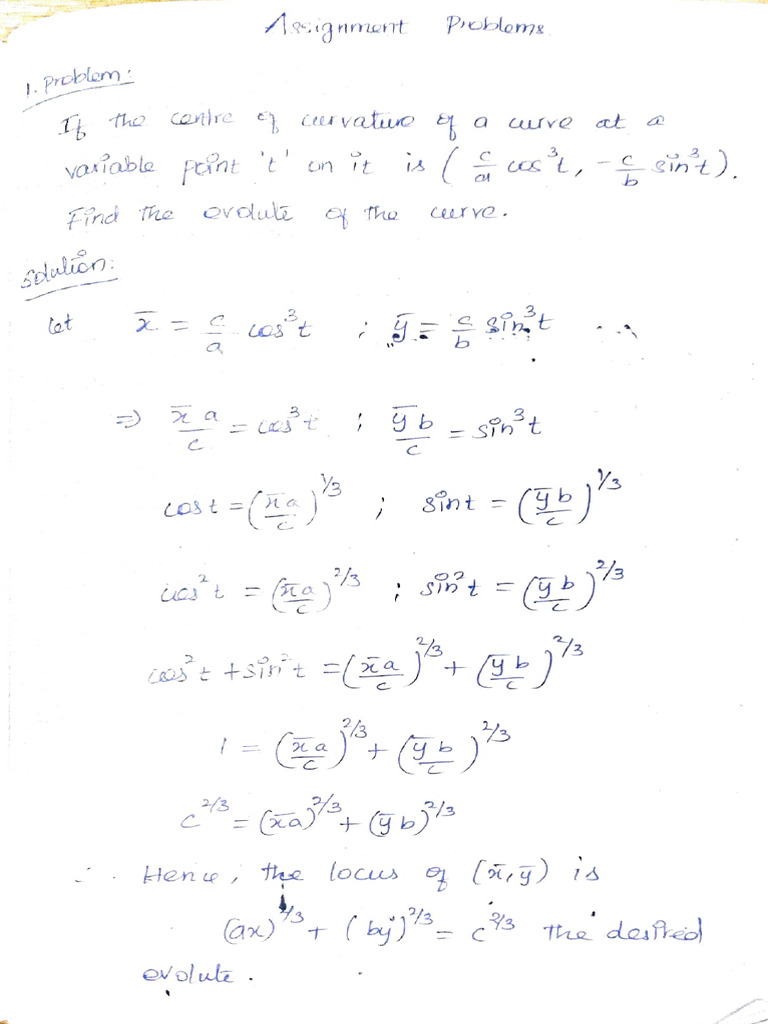 Assignment Problems
1. Problem:
If the centre of curvature of a curve at a
variable point 't' on it is ( c/a cos³t, - c/b sin³t).
Find the evolute of the curve.
Solution:
let x̄ = c/a cos³t ; ȳ = c/b sin³t
⇒ x̄a/c = cos³t ; ȳb/c = sin³t
cost = (x̄a/c)^1/3 ; sint = (ȳb/c)^1/3
cos²t = (x̄a/c)^2/3 ; sin²t = (ȳb/c)^2/3
cos²t + sin²t = (x̄a/c)^2/3 + (ȳb/c)^2/3
1 = (x̄a/c)^2/3 + (ȳb/c)^2/3
c^2/3 = (x̄a)^2/3 + (ȳb)^2/3
∴ Hence, the locus of (x̄,ȳ) is
(ax)^2/3 + (by)^2/3 = c^2/3 the desired
evolute.